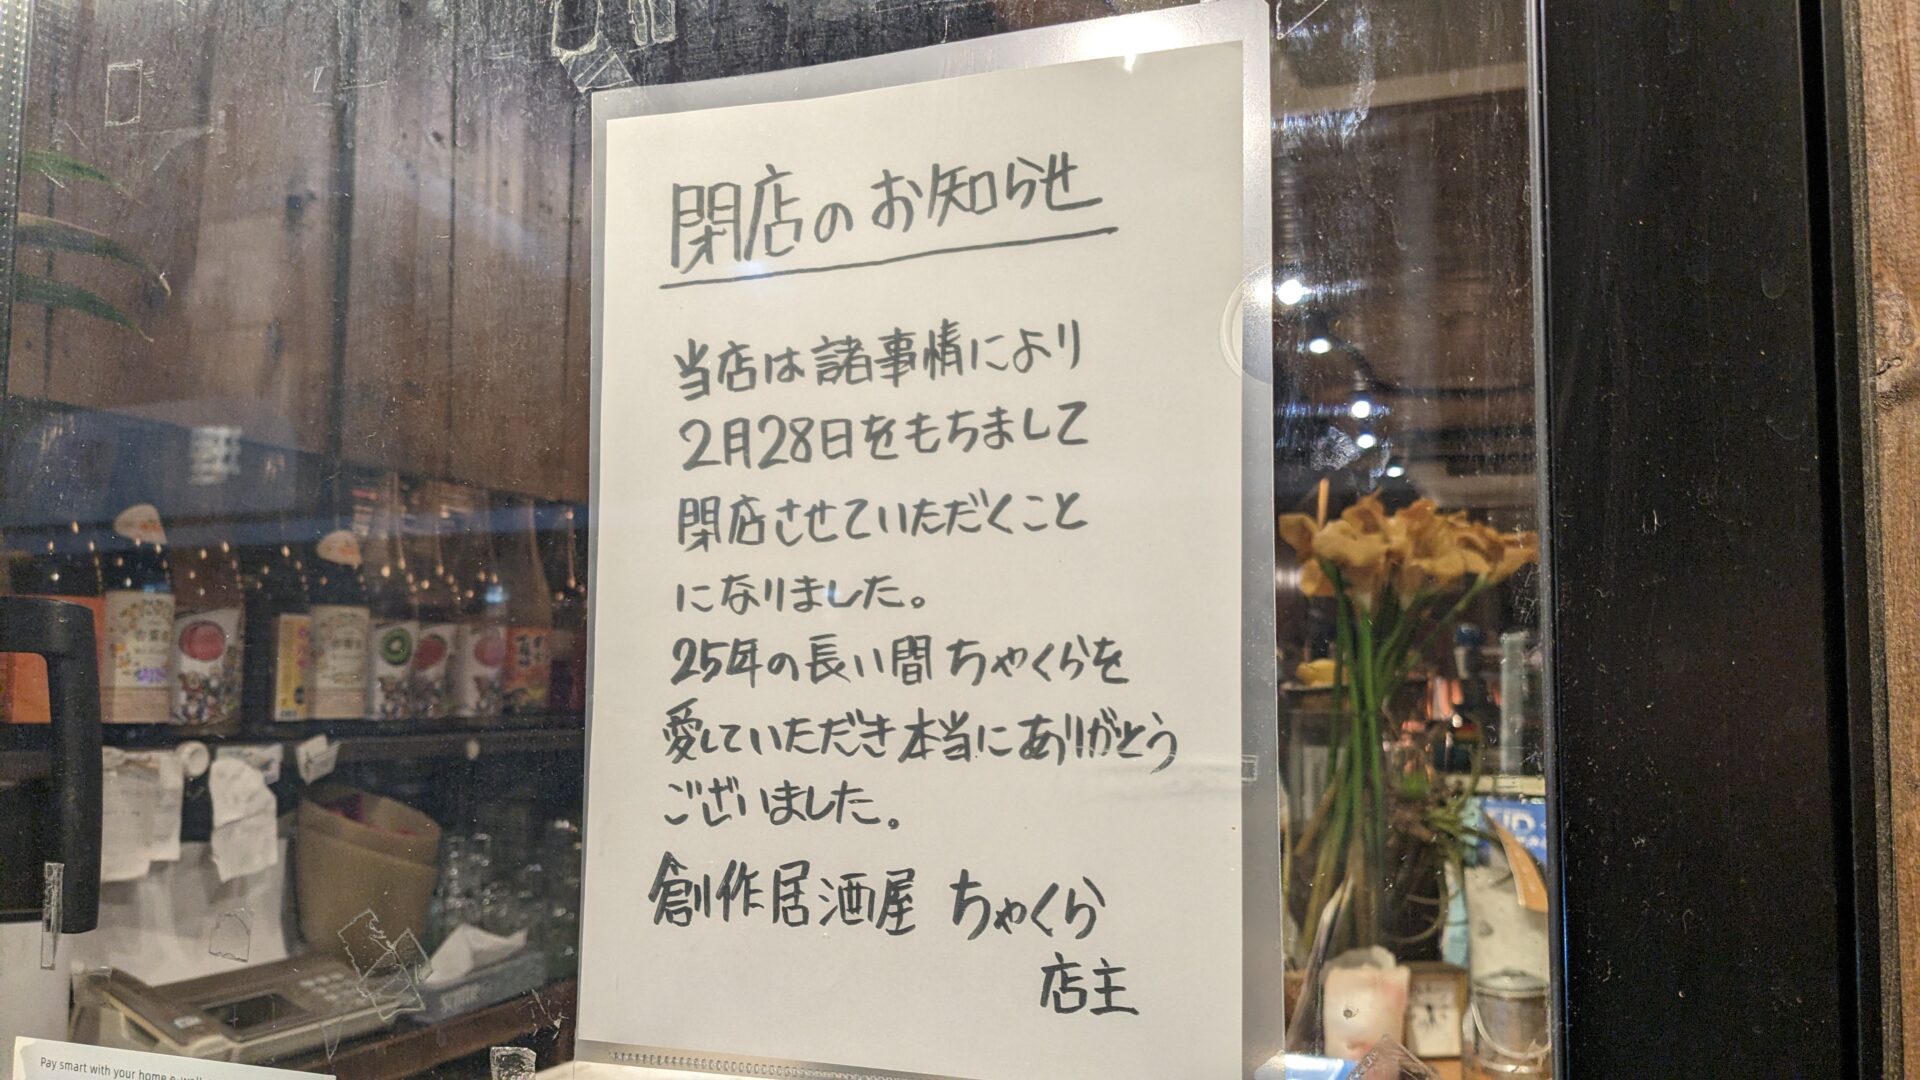 閉店のお知らせ
当店は諸事情により
2月28日をもちまして
閉店させていただくこと
になりました。
25年の長い間 ちゃくらを
愛していただき本当にありがとう
ございました。
創作居酒屋 ちゃくら
店主
Pay smart with your home